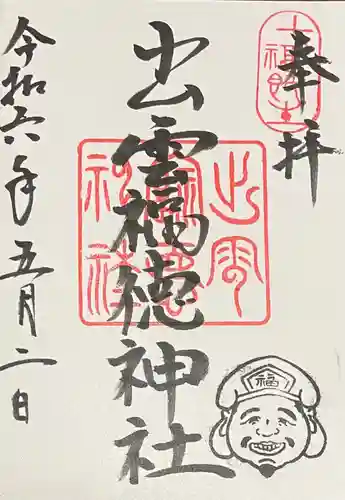 奉拝
出雲福徳神社
令和六年五月二日
福